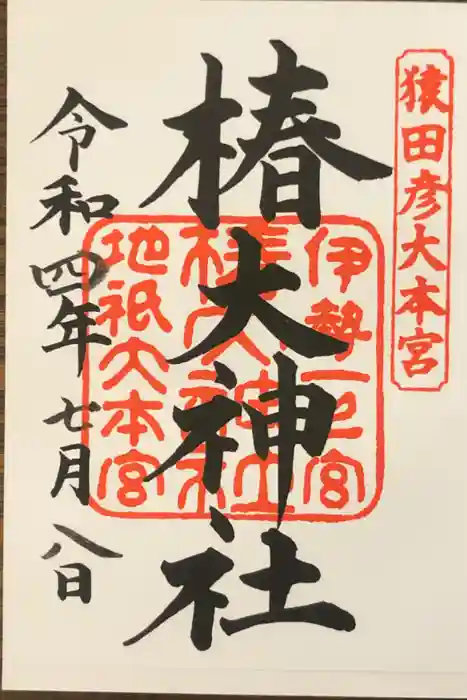 猿田彦大本宮
椿大神社
伊勢一之宮
椿大神社
地祇大本宮
令和四年七月八日